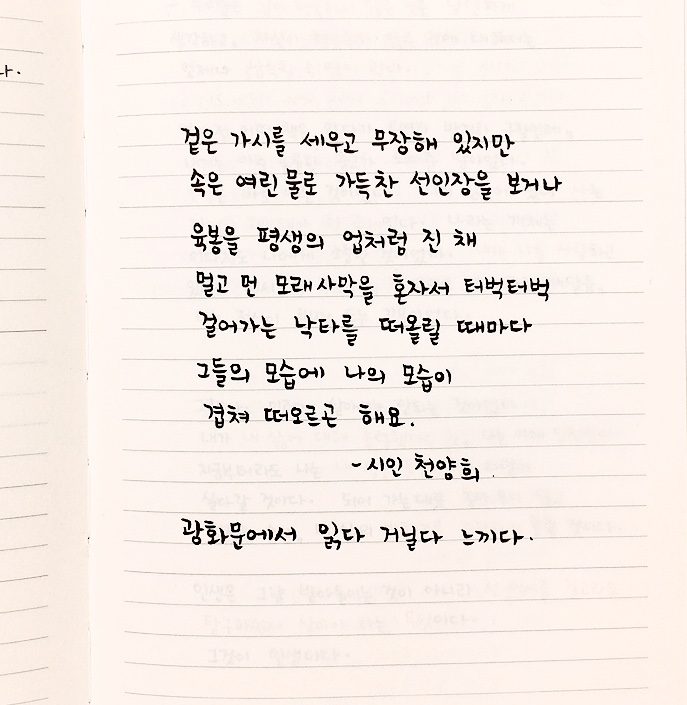 다.
겉은 가시를 세우고 무장해 있지만
속은 여린 물로 가득찬 선인장을 보거나
육봉을 평생의 업처럼 진 채
멀고 먼 모래사막을 혼자서 터벅터벅
걸어가는 낙타를 떠올릴 때마다
그들의 모습에 나의 모습이
겹쳐 떠오르곤 해요.
-시인 천양희.
광화문에서 읽다 거닐다 느끼다.